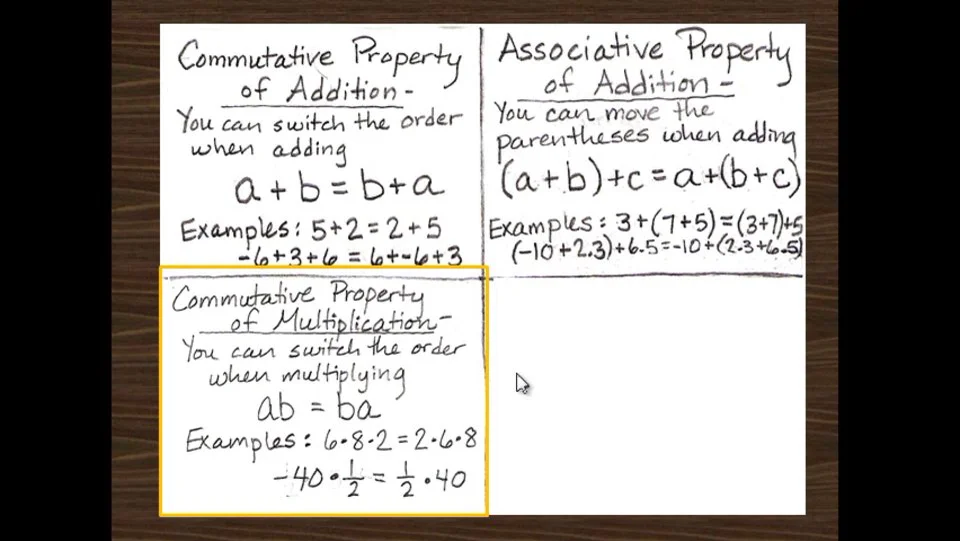 Commutative Property
of Addition-
You can switch the order
when adding
a + b = b + a
Examples: 5 + 2 = 2 + 5
-6 + 3 + 6 = 6 + -6 + 3
Associative Property
of Addition-
You can move the
parentheses when adding
(a + b) + c = a + (b + c)
Examples: 3 + (7 + 5) = (3 + 7) + 5
(-10 + 2.3) + 6.5 = -10 + (2.3 + 6.5)
Commutative Property
of Multiplication-
You can switch the order
when multiplying
ab = ba
Examples: 6 • 8 • 2 = 2 • 6 • 8
-40 • 1/2 = 1/2 • 40